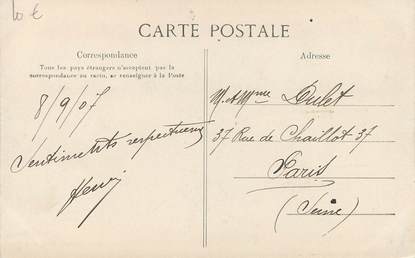 10 €
CARTE POSTALE
Correspondance
Tous les pays étrangers n'acceptent pas la
correspondance au recto, se renseigner à la Poste
8/9/07
Sentiments respectueux
Henri
Adresse
M. et Mme Dulet
37 Rue de Chaillot 37
Paris
(Seine)